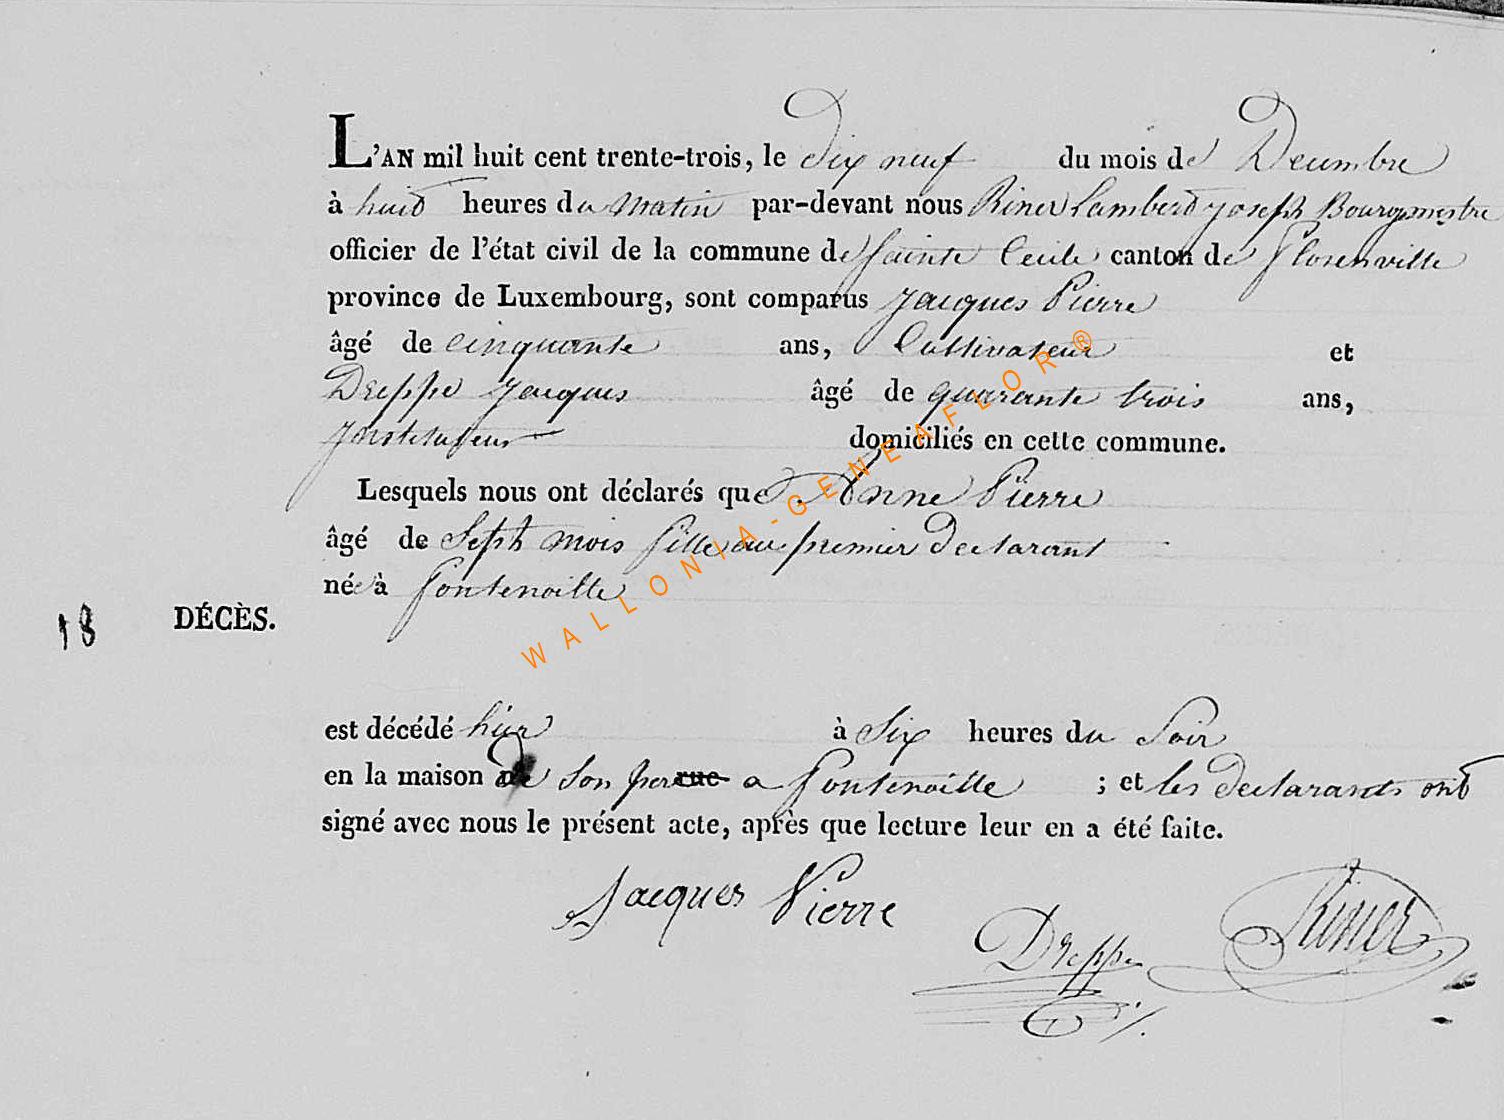 L'AN mil huit cent trente-trois, le dix neuf du mois de Decembre
à huit heures du matin par-devant nous Riner Lambert Joseph Bourgmestre
officier de l'état civil de la commune de Sainte Cecile canton de Florenville
province de Luxembourg, sont comparus Jacques Pierre
âgé de cinquante ans, Cultivateur et
Dreppe Jacques âgé de quarante trois ans,
Instituteur domiciliés en cette commune.
Lesquels nous ont déclarés que Anne Pierre
âgé de Sept mois fille au premier declarant
née à fontenoille
18 DÉCÈS.
est décédé hier à Six heures du Soir
en la maison de Son pere rue a fontenoille ; et les declarants ont
signé avec nous le présent acte, après que lecture leur en a été faite.
Jacques Pierre
Dreppe
Riner
WALLONIA-GENEAFLOR®